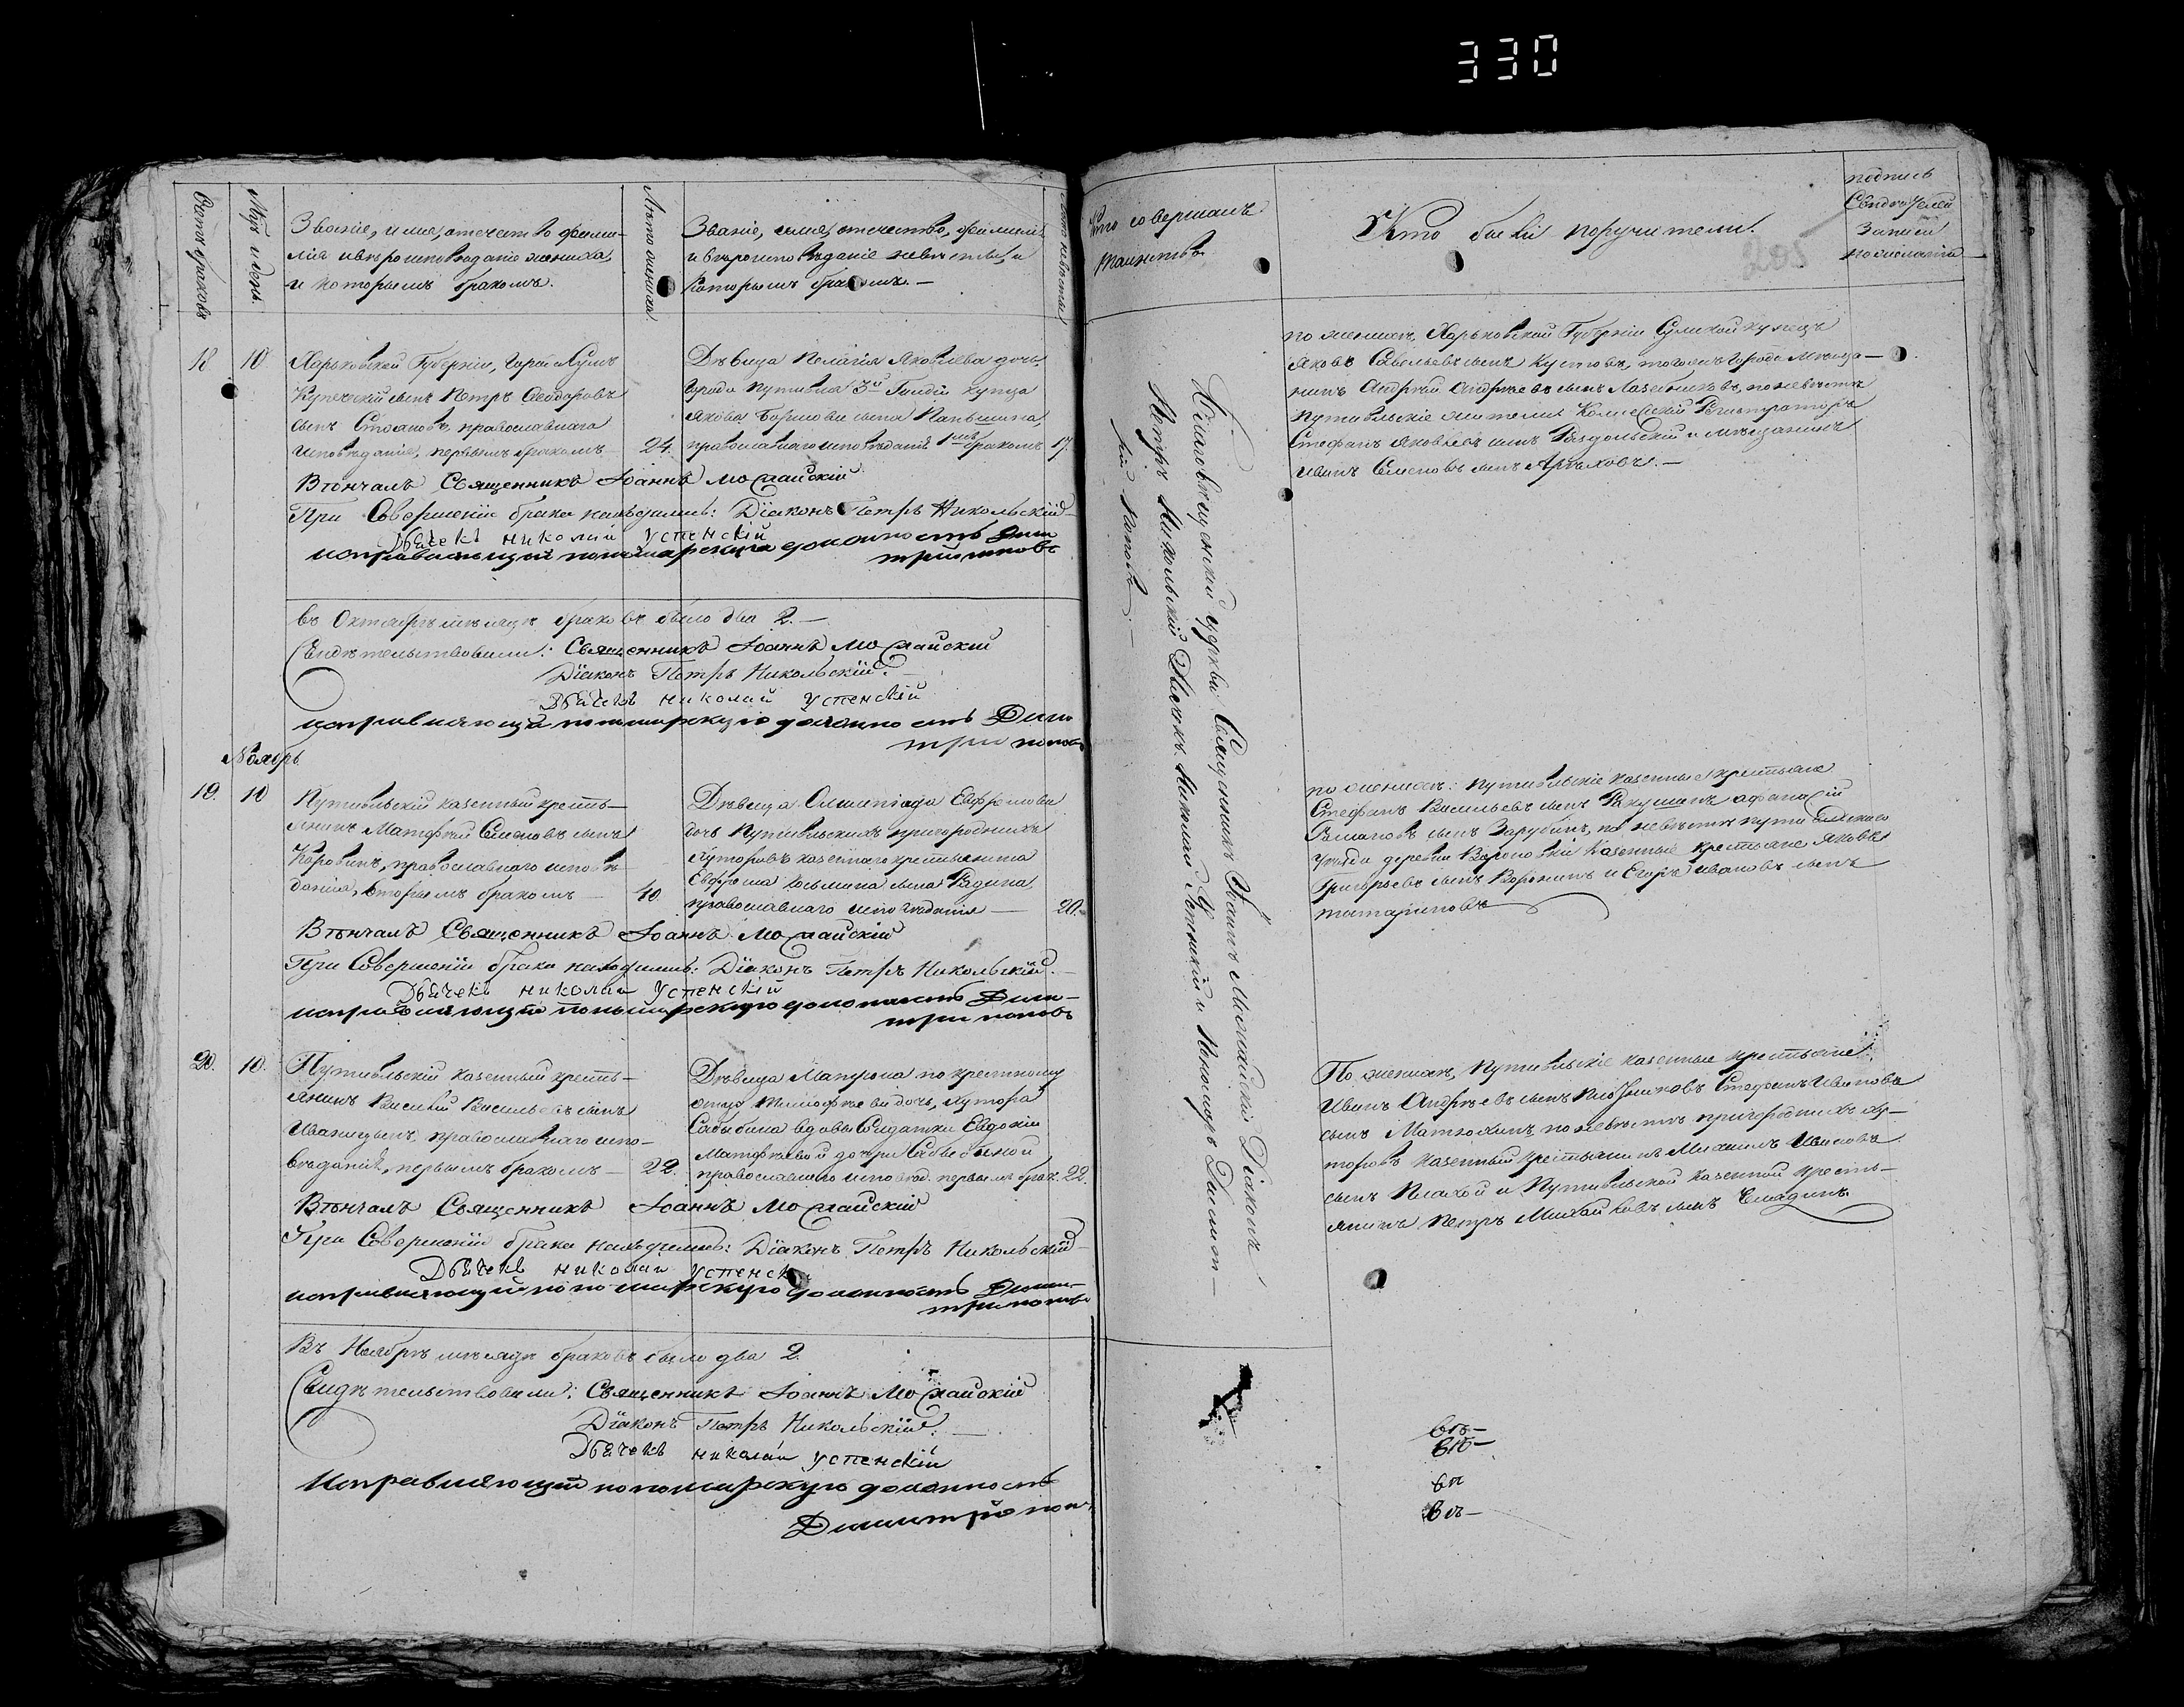 330
Счетъ браковъ
Мцъ и день.
Званіе, имя, отечество фами-
лія и вѣроисповѣданіе жениха,
и которымъ бракомъ.
Лѣта жениха.
Званіе, имя, отечество, фамилія
и вѣроисповѣданіе невѣсты, и
которымъ бракомъ.—
Лѣта невѣсты
Кто совершалъ
таинство
Кто были поручители.
205
подпись
Свидѣтелей
записи
по желанію
18 10. Харьковской Губерніи, города Сумъ
Купеческій сынъ Петръ Ѳеодоровъ
сынъ православнаго
исповѣданія, первымъ бракомъ — 24.
Дѣвица Пелагія Яковлева дочь,
города Путивля 3й Гильдіи купца
Якова сына
православнаго исповѣданія 1мъ бракомъ 17.
Вѣнчалъ Священникъ Іоаннъ Можайскій
При Совершеніи брака находились: Діаконъ Петръ Никольскій
Дьячекъ николай Успенскій
исправляющій пономарскую должность Дими
трій поповъ
въ Октябрѣ мѣсяцѣ браковъ было два 2.—
Свидѣтельствовали: Священникъ Іоаннъ Можайскій
Діаконъ Петръ Никольскій.
Дьячекъ николай Успенскій
исправляющій пономарскую должность Дими
трій поповъ
Ноябрь
19. 10 Путивльскій казенный кресть—
янинъ Матфей Семеновъ сынъ
Коровинъ, православнаго исповѣ
данія, вторымъ бракомъ — 40.
Дѣвица Олимпіада Евфремова
дочь Путивльскихъ пригородныхъ
Хуторовъ казеннаго крестьянина
Евфрема Козьмина сына Рядина,
православнаго исповѣданія — 20.
Вѣнчалъ Священникъ Іоаннъ Можайскій
При Совершеніи брака находились: Діаконъ Петръ Никольскій.
Дьячекъ николай Успенскій
исправляющій пономарскую должность Дими—
трій поповъ
20. 10. Путивльскій казенный кресть—
янинъ Василій Васильевъ сынъ
православнаго испо—
вѣданія, первымъ бракомъ — 22.
Дѣвица Матрона по крестному
отцу Тимофѣева дочь, хутора
вдовы Солдатки Евдокіи
Матфѣевой дочери
православнаго исповѣд. первымъ брак. 22.
Вѣнчалъ Священникъ Іоаннъ Можайскій
При Совершеніи брака находились: Діаконъ Петръ Никольскій
Дьячекъ николай Успенскій
исправляющій пономарскую должность Дими—
трій поповъ
Въ Ноябрѣ мѣсяцѣ браковъ было два 2.
Свидѣтельствовали: Священникъ Іоаннъ Можайскій
Діаконъ Петръ Никольскій.
Дьячекъ николай Успенскій
Исправляющій пономарскую должность
Димитрій поп.
Благовѣщенской церкви Священникъ Іоаннъ Можайскій Діаконъ
Петръ Никольскій Дьячекъ Николай Успенскій и Пономарь Димит—
рій Поповъ.—
по женихѣ, Харьковской Губерніи Сумской купецъ
Яковъ Савельевъ сынъ Кустовъ, тогожъ Города мѣща—
нинъ Андрей Андреевъ сынъ по невѣстѣ
Путивльскіе жители Коллежскій Регистраторъ
Стефанъ Яковлевъ сынъ Раздольскій и мѣщанинъ
Иванъ Семеновъ сынъ —
по женихѣ: Путивльскіе казенные крестьяне
Стефанъ Васильевъ сынъ афанасій
Романовъ сынъ Зарубинъ, по невѣстѣ путивльскаго
уѣзда деревни казенные крестьяне Яковъ
Григорьевъ сынъ Воронинъ и Егоръ Ивановъ сынъ
татариновъ
По женихѣ, Путивльскіе казенные крестьяне
Иванъ Андреевъ сынъ Стефанъ Ивановъ
сынъ по невѣстѣ пригородныхъ ху—
торовъ казенный крестьянинъ Михаилъ Ивановъ
сынъ Плахой и Путивльской казенной кресть—
янинъ Петръ Михайловъ сынъ